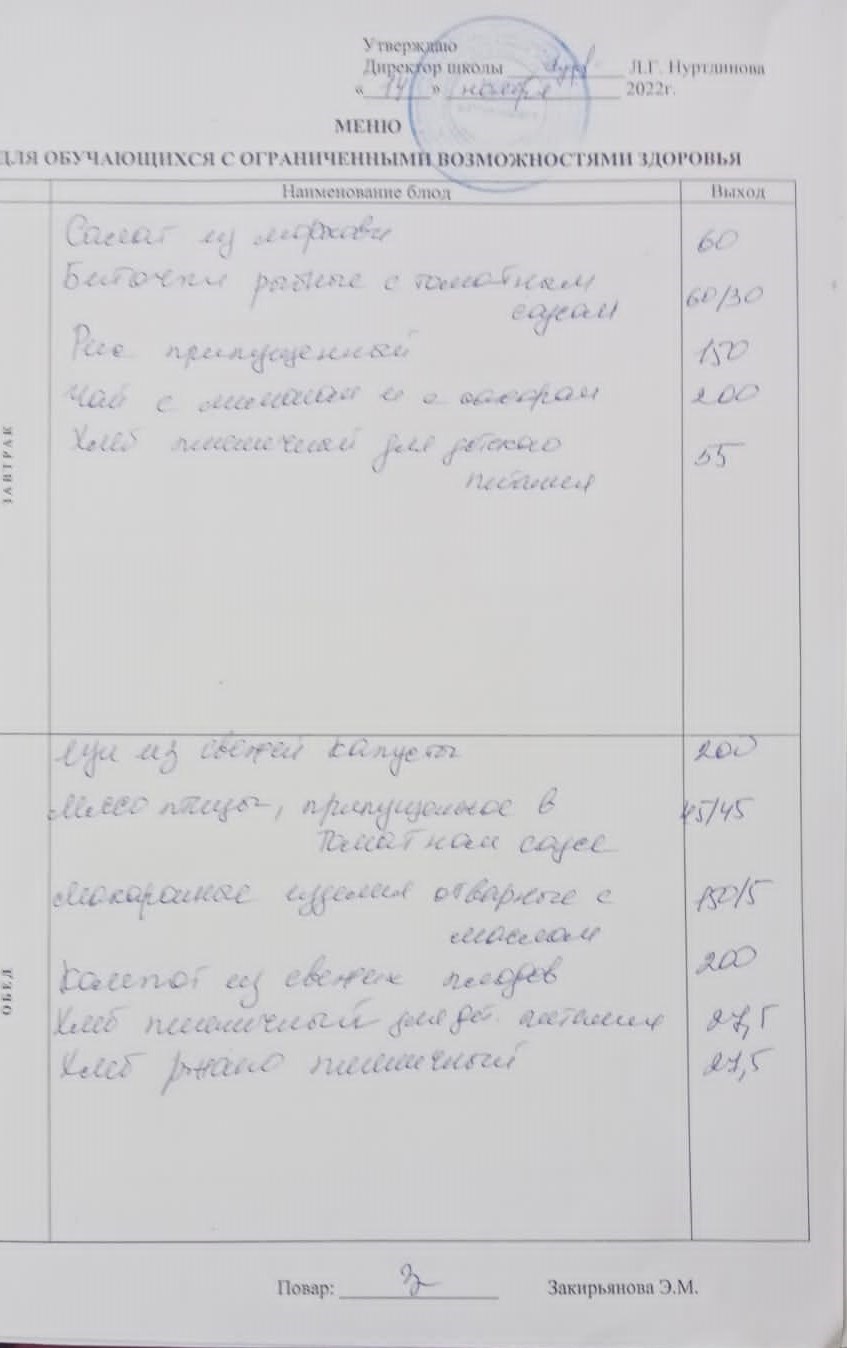 Утверждаю
Директор школы Л.Г. Нуртдинова
« 14 » ноября 2022г.
МЕНЮ
ДЛЯ ОБУЧАЮЩИХСЯ С ОГРАНИЧЕННЫМИ ВОЗМОЖНОСТЯМИ ЗДОРОВЬЯ
Наименование блюд Выход
ЗАВТРАК
Салат из моркови 60
Биточки рыбные с томатным
соусом 60/30
Рис припущенный 150
Чай с лимоном и с сахаром 200
Хлеб пшеничный для детского 55
питания
ОБЕД
Щи из свежей капусты 200
Мясо птицы, припущенное в 45/45
томатном соусе
Макаронные изделия отварные с 150/5
маслом
Компот из свежих плодов 200
Хлеб пшеничный для дет. питания 27,5
Хлеб ржано пшеничный 27,5
Повар: Закирьянова Э.М.